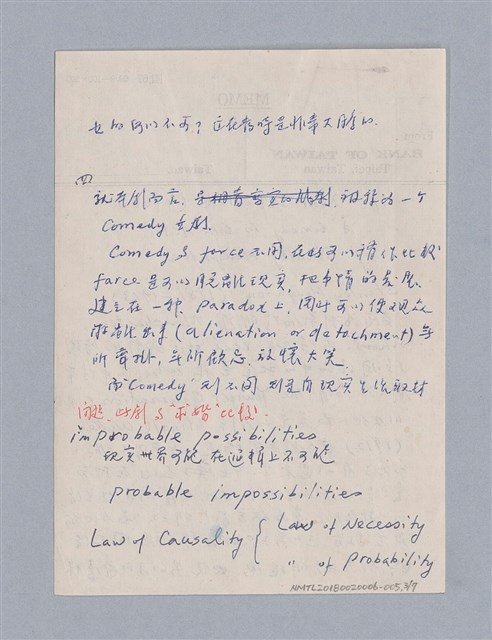 也的何以不可？这在当時是非常大胆的.
四
就本劇而言,
一个
Comedy 喜劇.
Comedy 与 farce 不同, 在好可以有作比較
farce 是可以脱離現实, 把事情的發展
建立在一种 Paradox 上, 同時可以使观众
疏離出来 (alienation or detachment) 無
所牽掛, 無所顧忌, 放懷大笑.
而 "Comedy" 則不同 則是自現实生活取材
問題, 此劇与「求婚」比較.
improbable possibilities
現实世界可能 在邏輯上不可能
probable impossibilities
Law of Causality { Laws of Necessity
" of Probability
NMTL20180020006-005, 3/7
MEMO
BANK OF TAIWAN
Taipei, Taiwan